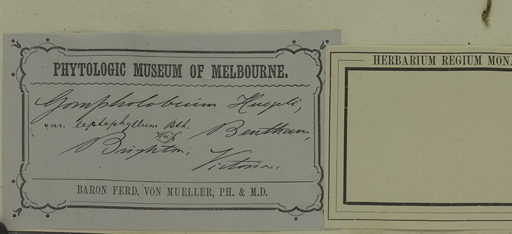 PHYTOLOGIC MUSEUM OF MELBOURNE.
Gompholobium Huegelii,
var. leptophyllum Bth.
Bentham,
Brighton,
Victoria.
BARON FERD. VON MUELLER, PH. & M.D.
HERBARIUM REGIUM MON